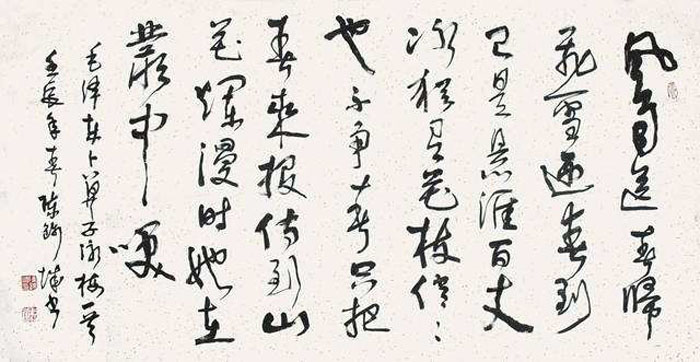 风雨送春归
飞雪迎春到
已是悬崖百丈
冰犹有花枝俏〻
也不争春只把
春来报待到山
花烂漫时她在
丛中咲
毛泽东卜算子咏梅一首
壬辰年春陈书